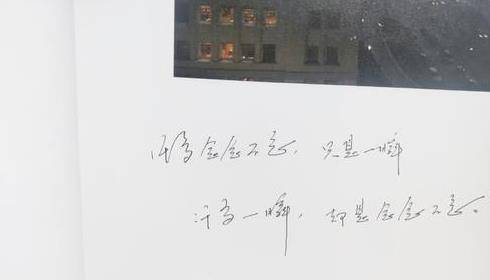 许多念念不忘，只是一瞬
许多一瞬，却是念念不忘。